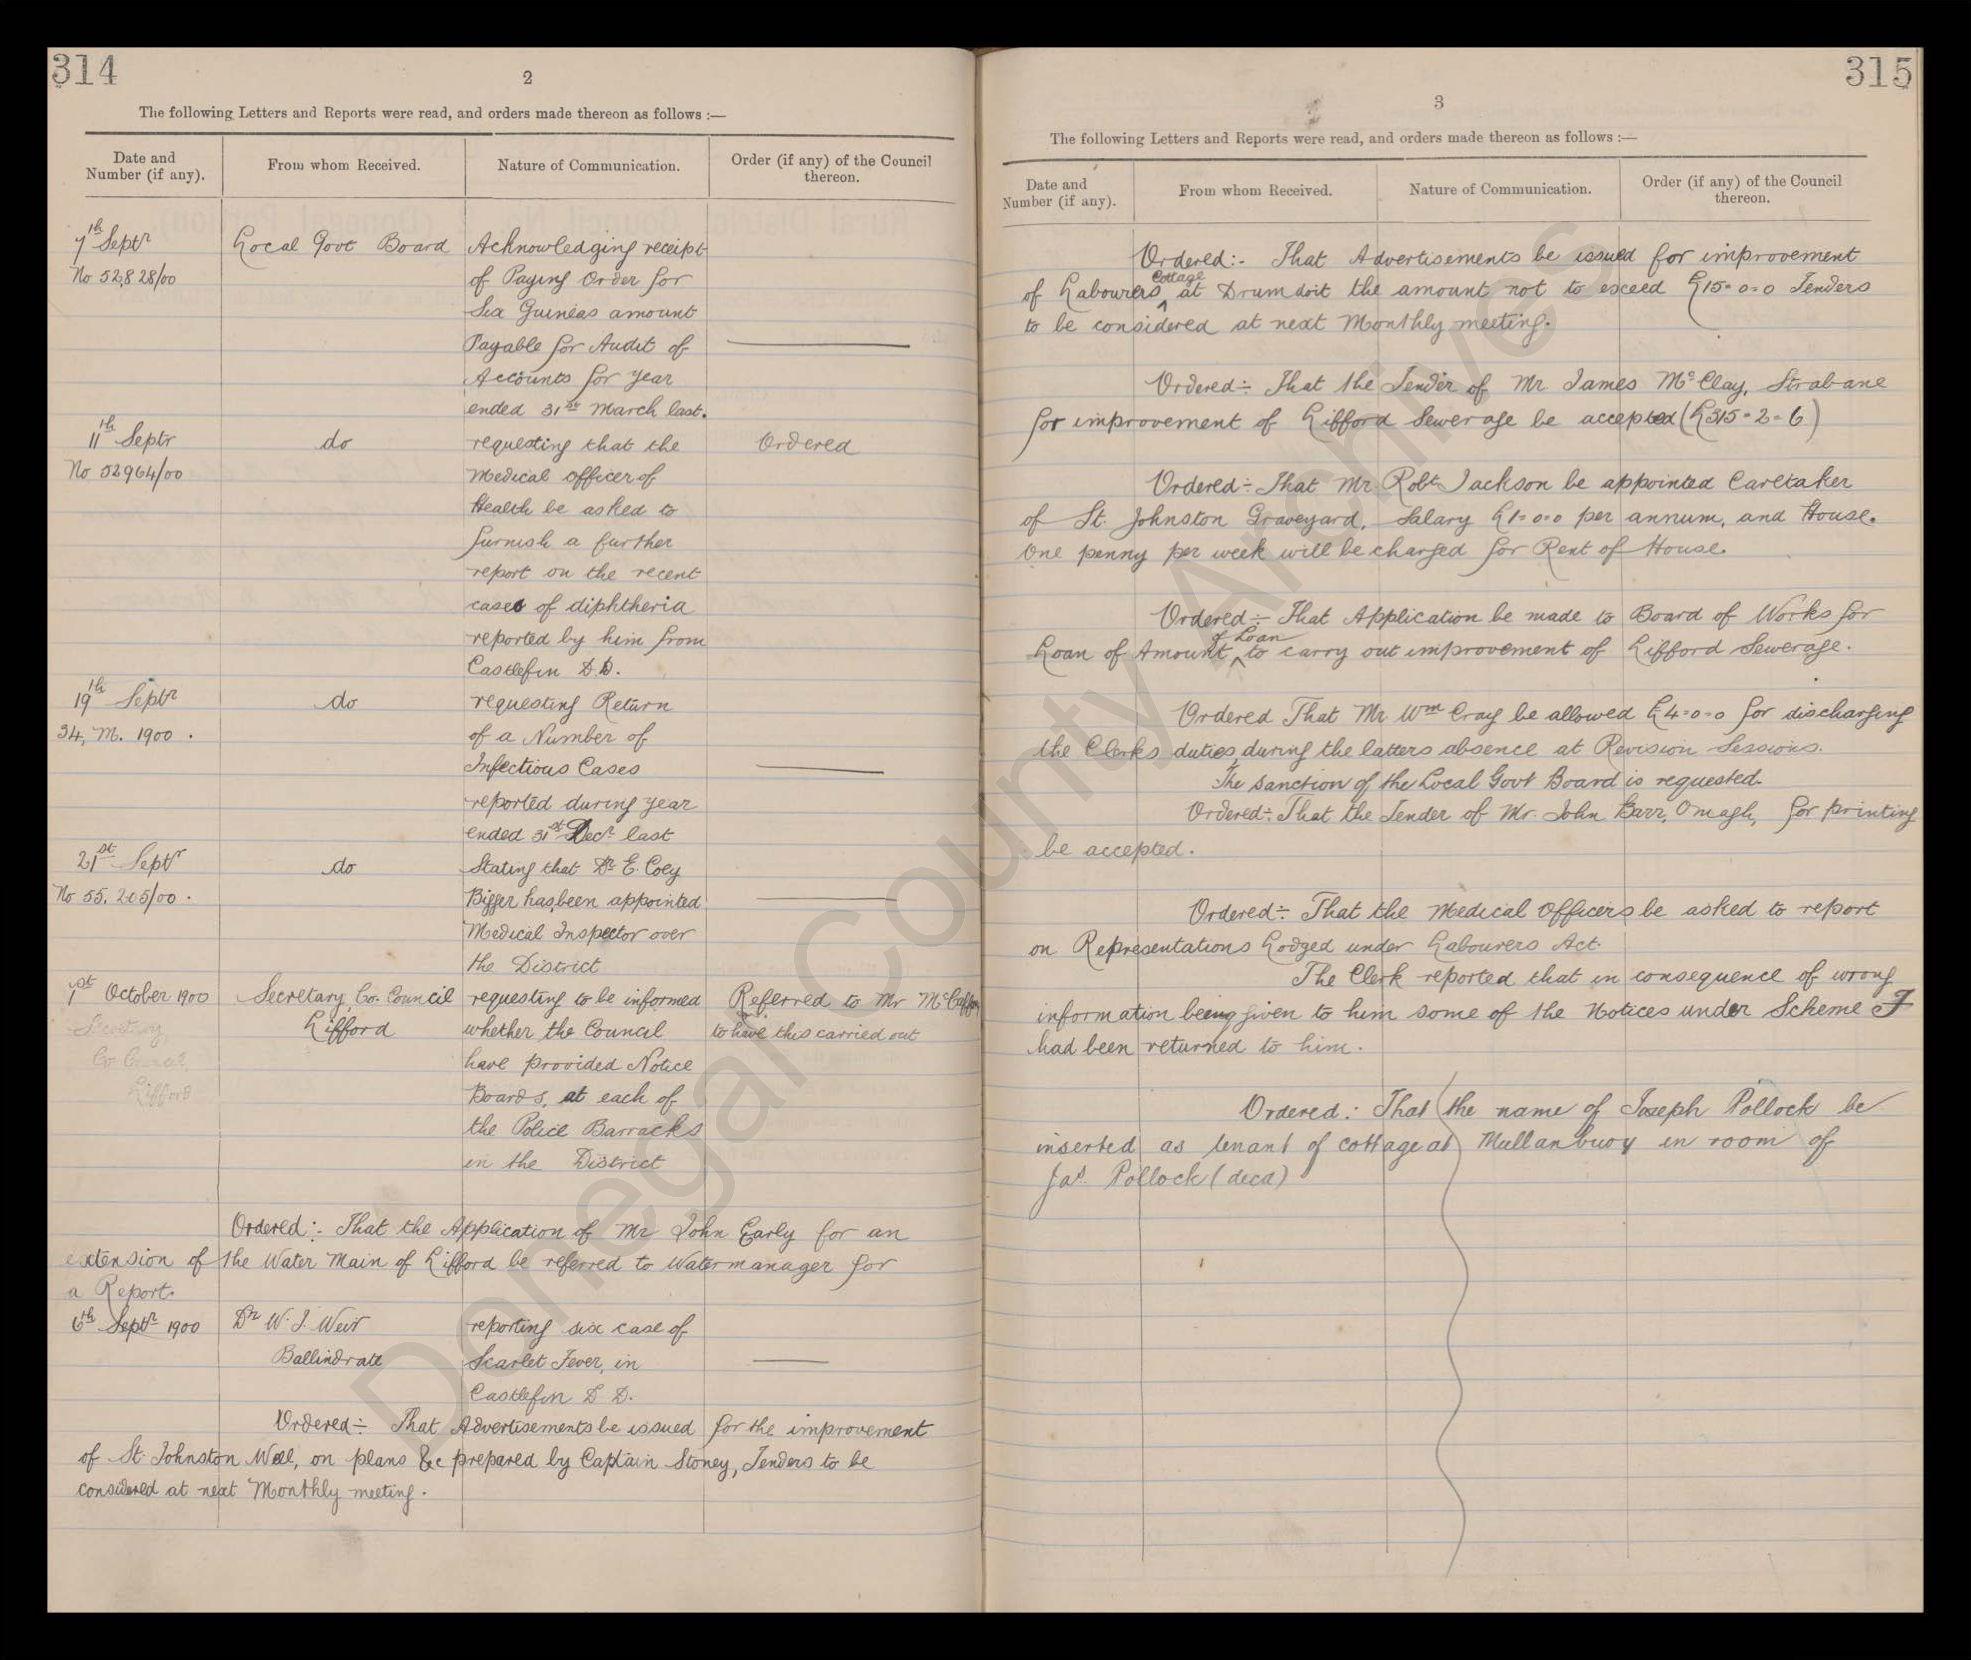 314
2
The following Letters and Reports were read, and orders made thereon as follows :—
Date and Number (if any).
From whom Received.
Nature of Communication.
Order (if any) of the Council thereon.
7th Septr Local Govt Board Acknowledging receipt
No 52,828/00 of Paying Order for
Six Guineas amount
Payable for Audit of
Accounts for year
ended 31st March last.
11th Septr do requesting that the Ordered
No 52964/00 Medical Officer of
Health be asked to
furnish a further
report on the recent
cases of diphtheria
reported by him from
Castlefin D.D.
19th Septr do requesting Return
34, M. 1900. of a Number of
Infectious Cases
reported during year
ended 31st Decr last
21st Septr do Stating that Dr E. Coey
No 55,205/00. Bigger has been appointed
Medical Inspector over
the District
1st October 1900 Secretary, Co. Council requesting to be informed Referred to Mr
Secretary Lifford whether the Council to have this carried out
Co Council have provided Notice
Lifford Boards, at each of
the Police Barracks
in the District
Ordered:- That the Application of Mr John Early for an
extension of the Water Main of Lifford be referred to Watermanager for
a Report.
6th Septr 1900 Dr W. J. Weir reporting six case of
Ballindrait Scarlet Fever, in
Castlefin D D.
Ordered:- That Advertisements be issued for the improvement
of St Johnston Well, on plans &c prepared by Captain Stoney, Tenders to be
considered at next Monthly meeting.
315
3
The following Letters and Reports were read, and orders made thereon as follows :—
Date and Number (if any).
From whom Received.
Nature of Communication.
Order (if any) of the Council thereon.
Ordered:- That Advertisements be issued for improvement
of Labourers Cottage at Drumdoit the amount not to exceed £15=0=0 Tenders
to be considered at next Monthly meeting.
Ordered:- That the Tender of Mr James McClay, Strabane
for improvement of Lifford Sewerage be accepted (£315=2=6)
Ordered:- That Mr. Robt Jackson be appointed Caretaker
of St. Johnston Graveyard, Salary £1=0=0 per annum, and House.
One penny per week will be charged for Rent of House.
Ordered:- That Application be made to Board of Works for
Loan of Amount of Loan to carry out improvement of Lifford Sewerage.
Ordered That Mr Wm Craig be allowed £4=0=0 for discharging
the Clerks duties, during the latters absence at Revision Sessions.
The sanction of the Local Govt Board is requested.
Ordered:- That the Tender of Mr. John Barr, Omagh, for printing
be accepted.
Ordered:- That the Medical Officers be asked to report
on Representations Lodged under Labourers Act.
The Clerk reported that in consequence of wrong
information being given to him some of the Notices under Scheme J
had been returned to him.
Ordered: That the name of Joseph Pollock be
inserted as tenant of cottage at Mullanbuoy in room of
Jas. Pollock (decd)
Donegal County Archives